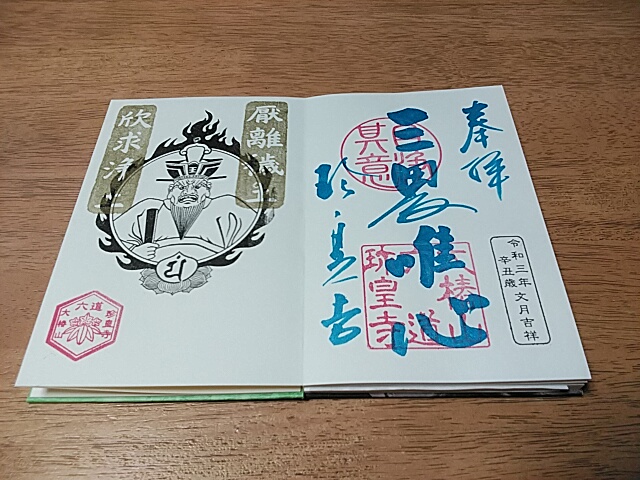 奉拝
三界唯心
珍皇寺
自浄其意
大椿山
六道
珍皇寺
令和三年文月吉祥
辛丑歳
厭離穢土
欣求浄土
六道
珍皇寺
大椿山